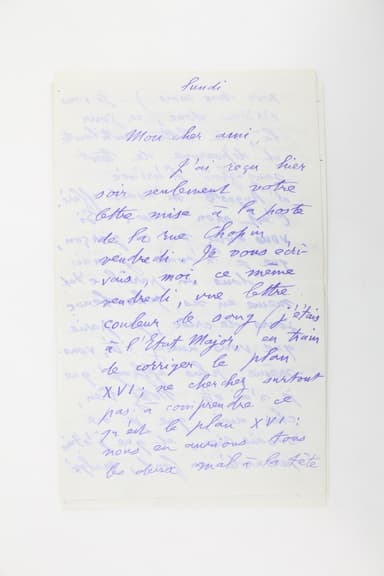 Lundi
Mon cher ami,
J'ai reçu hier
soir seulement votre
lettre mise à la poste
de la rue Chopin,
vendredi. Je vous écri-
vais, moi, ce même
vendredi, une lettre
couleur de sang (j'étais
à l'Etat Major, en train
de corriger le plan
XVI; ne cherchez surtout
pas à comprendre ce
qu'est le plan XVI:
nous en aurions tous
les deux mal à la tête